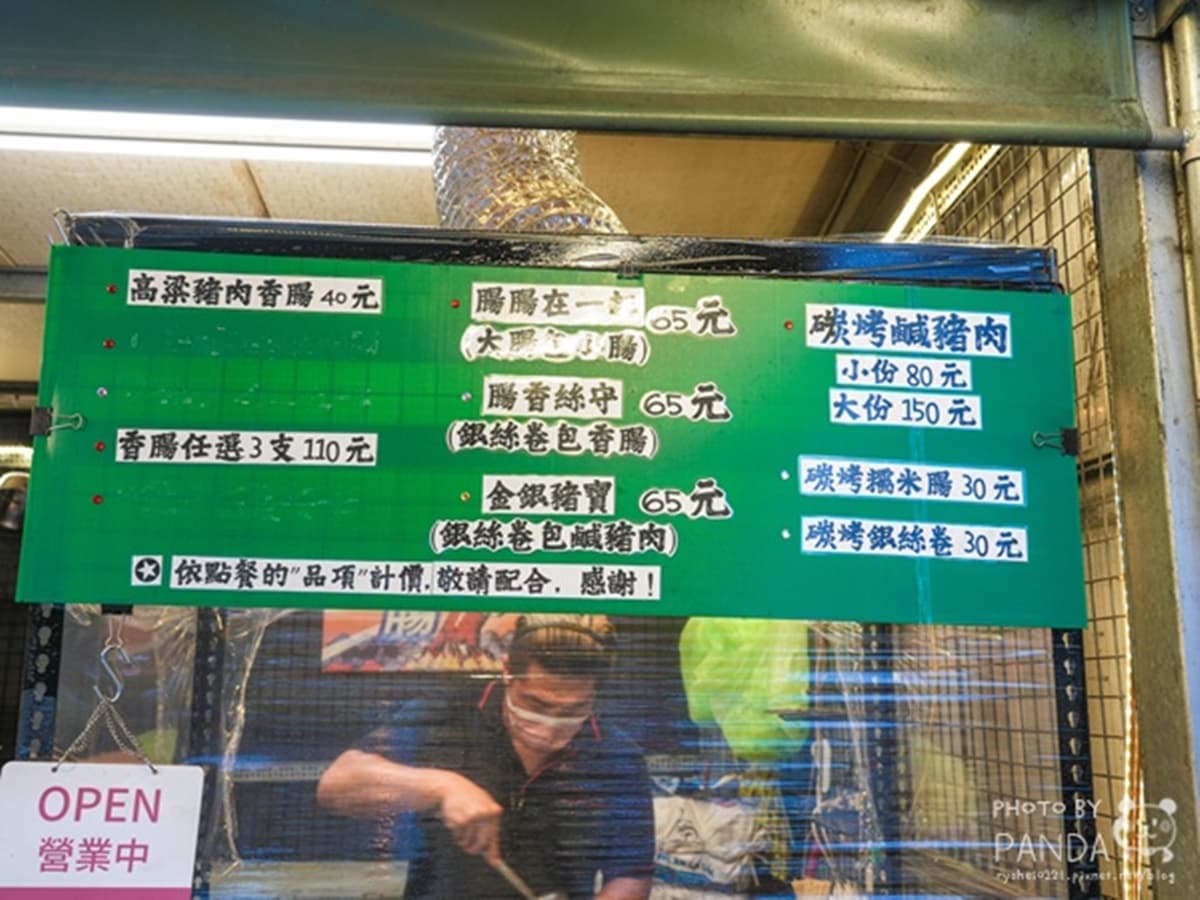 高粱豬肉香腸40元
香腸任選3支110元
腸腸在一起 65元
(大腸包小腸)
腸香絲守 65元
(銀絲卷包香腸)
金銀豬寶 65元
(銀絲卷包鹹豬肉)
碳烤鹹豬肉
小份80元
大份150元
碳烤糯米腸30元
碳烤銀絲卷30元
依點餐的"品項"計價.敬請配合. 感謝!
腸
OPEN
營業中
PHOTO BY
PANDA
ryohei0221.pixnet.net/blog